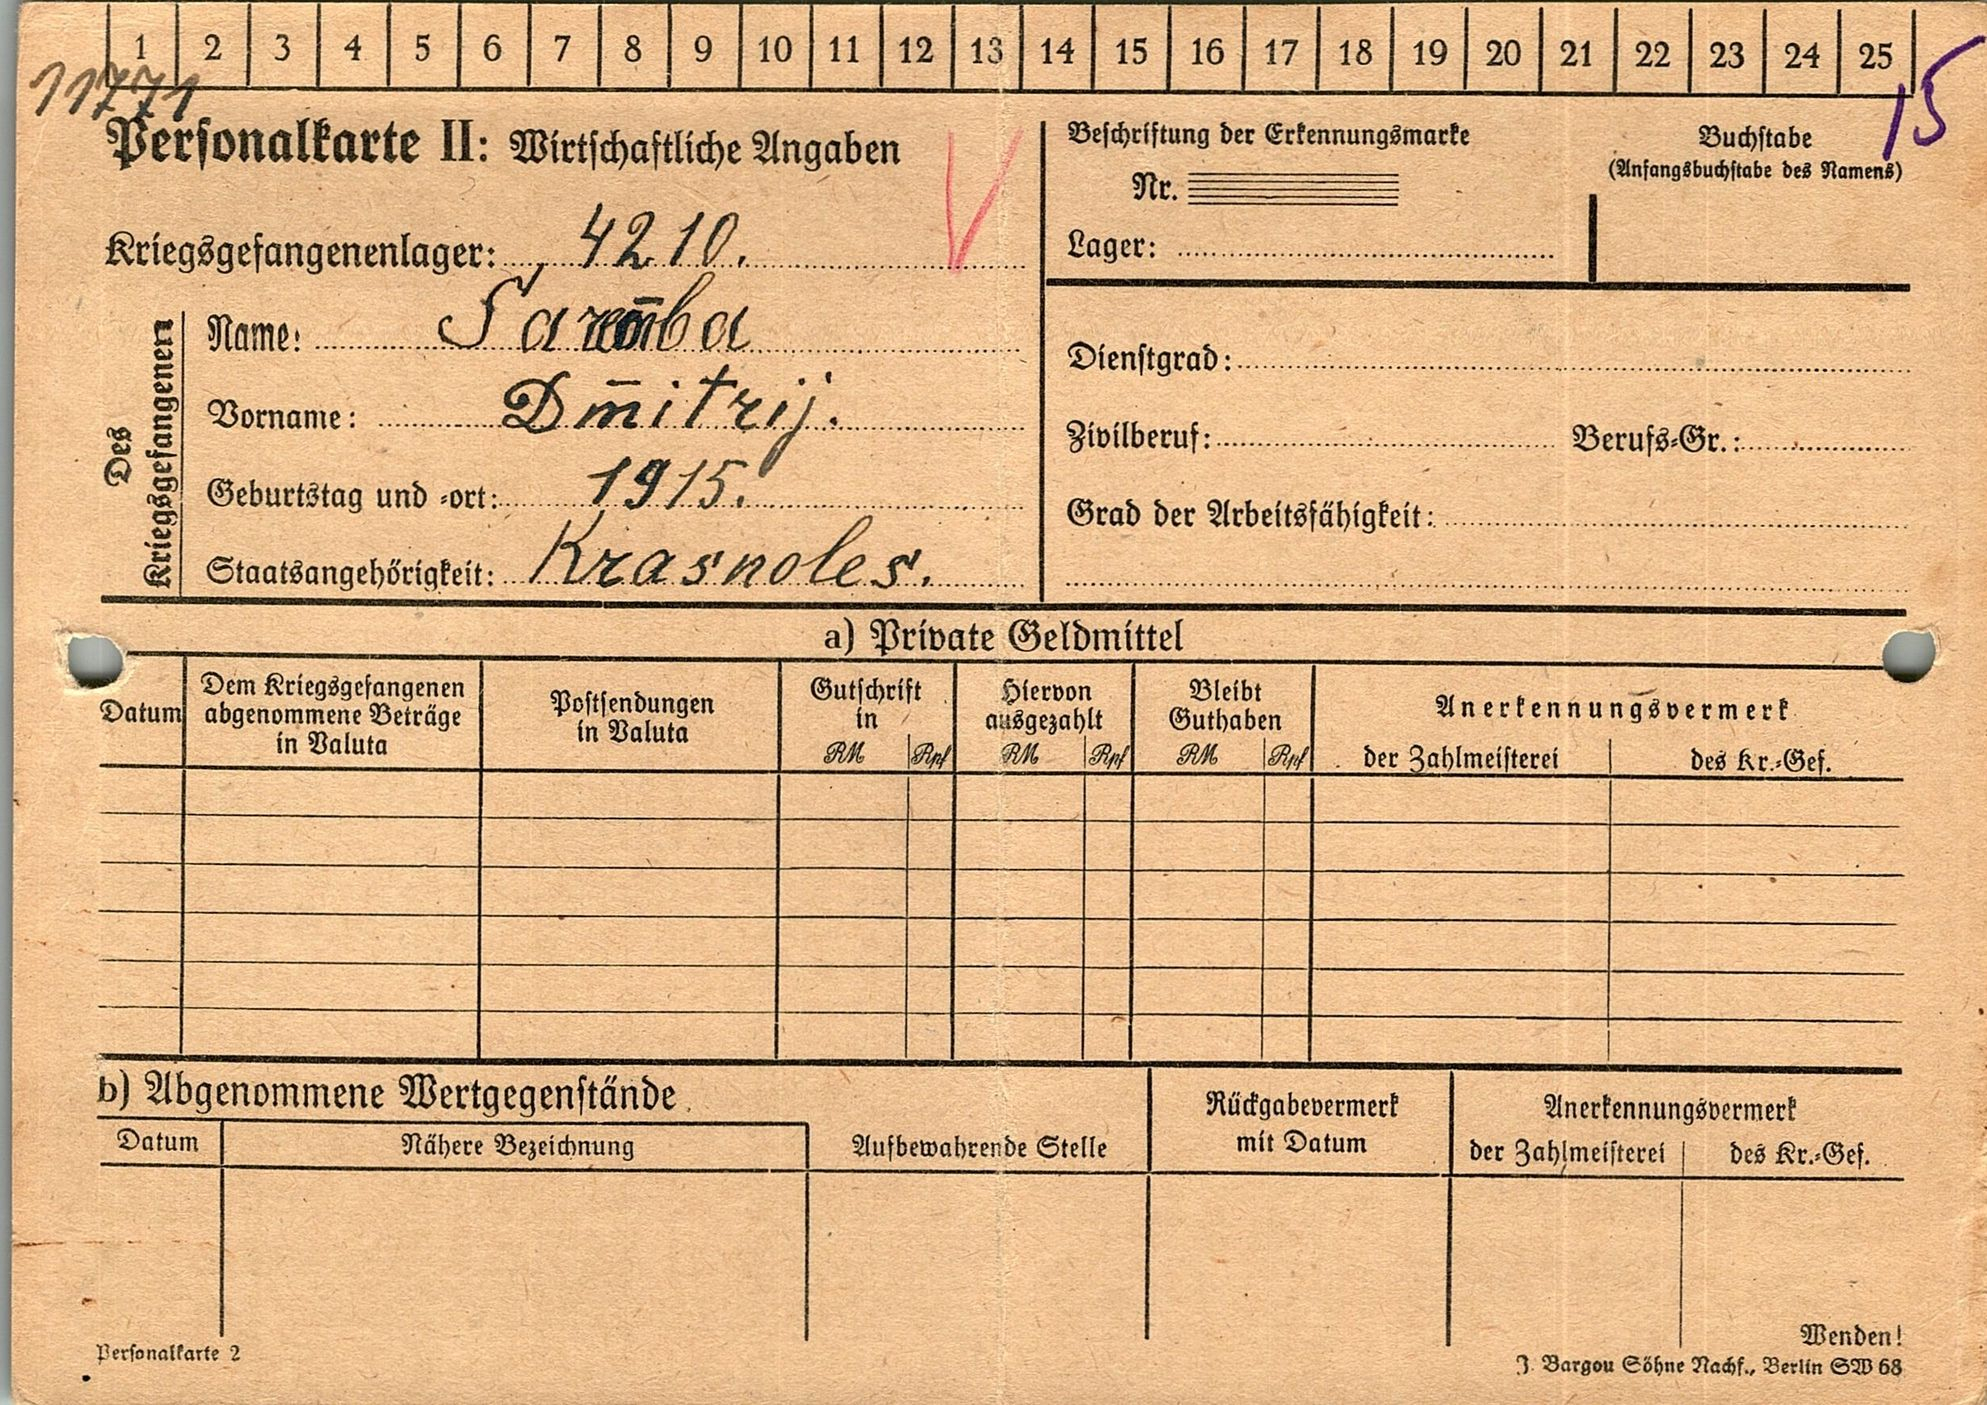 1 2 3 4 5 6 7 8 9 10 11 12 13 14 15 16 17 18 19 20 21 22 23 24 25
11771
15
Personalkarte II: Wirtschaftliche Angaben
Kriegsgefangenenlager: 4210.
Des Kriegsgefangenen
Name:
Vorname: Dm̄itrij.
Geburtstag und -ort: 1915.
Staatsangehörigkeit: Krasnoles.
Beschriftung der Erkennungsmarke
Nr.
Lager:
Buchstabe
(Anfangsbuchstabe des Namens)
Dienstgrad:
Zivilberuf: Berufs-Gr.:
Grad der Arbeitsfähigkeit:
a) Private Geldmittel
Datum
Dem Kriegsgefangenen
abgenommene Beträge
in Valuta
Postsendungen
in Valuta
Gutschrift
in
RM Rpf
Hiervon
ausgezahlt
RM Rpf
Bleibt
Guthaben
RM Rpf
Anerkennungsvermerk
der Zahlmeisterei des Kr.-Gef.
b) Abgenommene Wertgegenstände
Datum Nähere Bezeichnung
Aufbewahrende Stelle
Rückgabevermerk
mit Datum
Anerkennungsvermerk
der Zahlmeisterei des Kr.-Gef.
Wenden!
Personalkarte 2
J. Bargou Söhne Nachf., Berlin SW 68